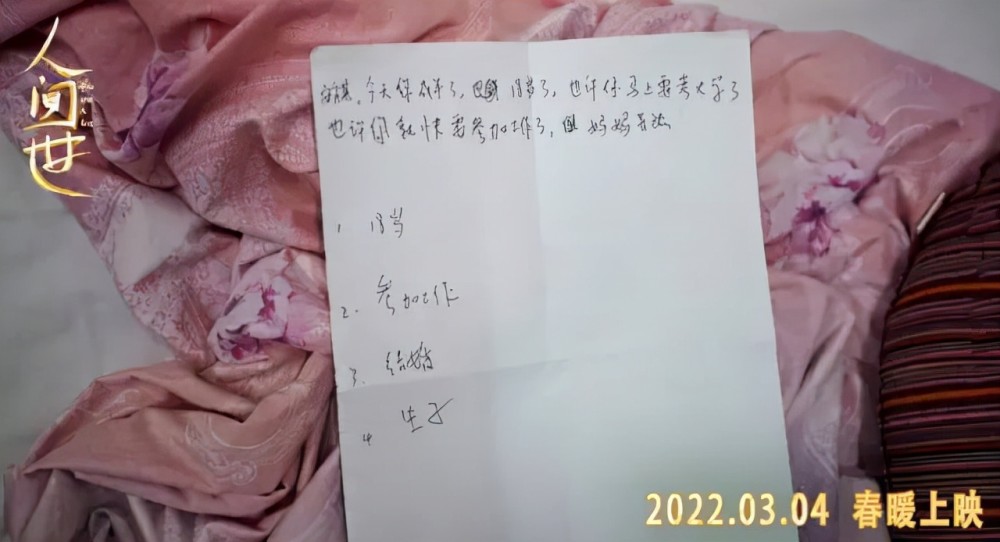 人间世
今天你成年了，18岁了，也许你马上要考大学了
也许你就快要参加工作了，但妈妈无法
1 18岁
2. 参加工作
3. 结婚
4 生子
2022.03.04 春暖上映